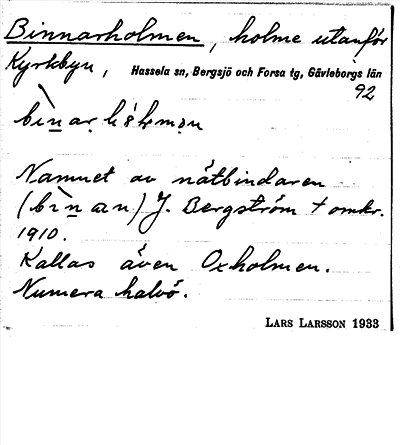 Binnarholmen, holme utanför
Kyrkbyn, Hassela sn, Bergsjö och Forsa tg, Gävleborgs län
92
Namnet av nätbindaren
(bìnan) J. Bergström † omkr.
1910.
Kallas även Oxholmen.
Numera halvö.
LARS LARSSON 1933